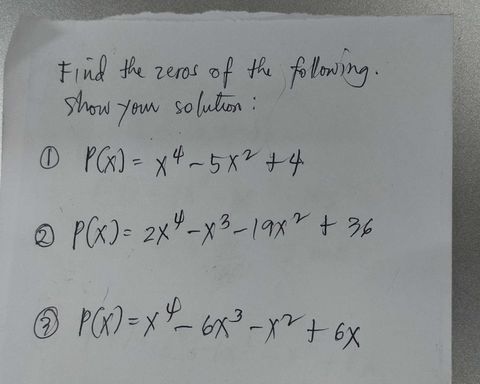 Find the zeros of the following.
Show your solution:
① P(x) = x⁴ - 5x² + 4
② P(x) = 2x⁴ - x³ - 19x² + 36
③ P(x) = x⁴ - 6x³ - x² + 6x